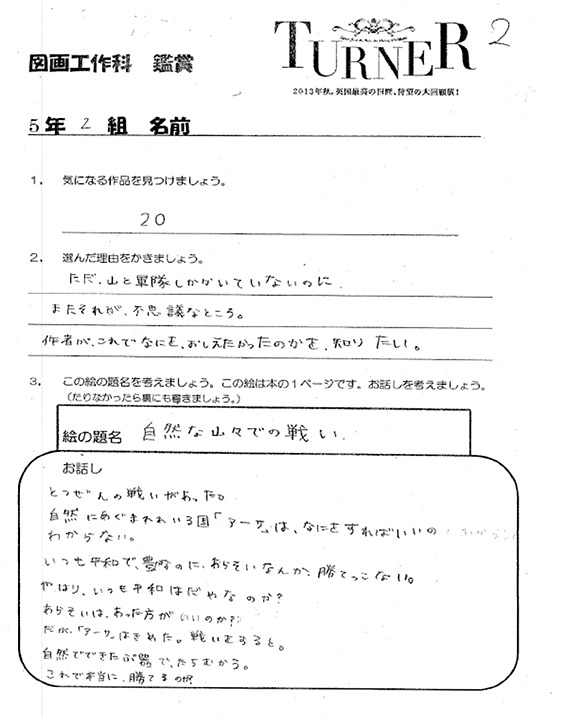 TURNER
2
図画工作科 鑑賞
2013年秋。英国最高の巨匠、待望の大回顧展!
5年 2 組 名前
1. 気になる作品を見つけましょう。
20
2. 選んだ理由をかきましょう。
ただ、山と軍隊しかかいていないのに、
またそれが、不思議なところ。
作者が、これでなにを、おしえたかったのかを、知りたい。
3. この絵の題名を考えましょう。この絵は本の1ページです。お話しを考えましょう。
(たりなかったら裏にも書きましょう。)
絵の題名 自然な山々での戦い
お話し
とつぜんの戦いがあった。
自然にめぐまれれいる国「アーサ」は、なにをすればいいの
わからない。
いつも平和で、豊なのに、あらそいなんか、勝てっこない。
やはり、いつも平和はだめなのか?
あらそいは、あった方がいいのか?
だが、「アーサ」はきめた。戦いをすると。
自然でできたぶ器で、たちむかう。
これで本当に、勝てるのか